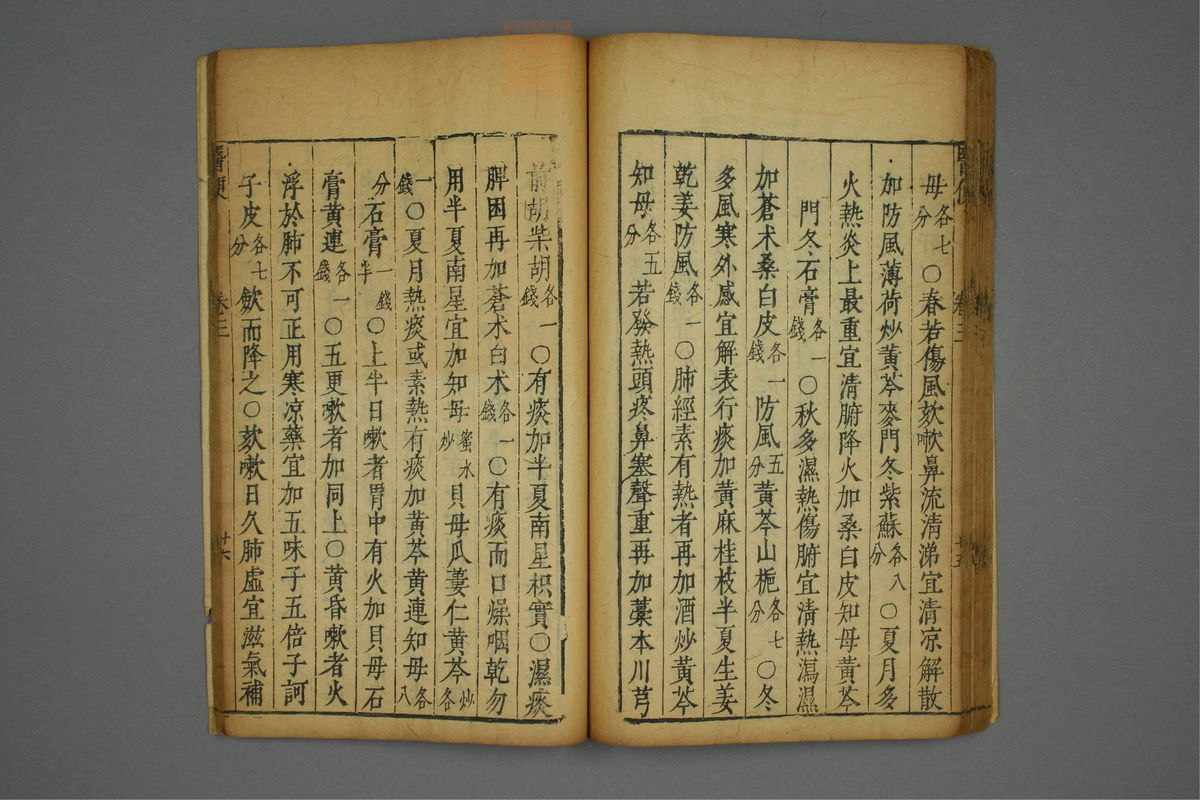 母各七分○春若傷風欬嗽鼻流清涕宜清凉解散
加防風薄荷炒黃芩麥門冬紫蘇各八分○夏月多
火熱炎上最重宜清腑降火加桑白皮知母黃芩
門冬石膏各一錢○秋多濕熱傷腑宜清熱瀉濕
加蒼术桑白皮各一錢防風五分黃芩山梔各七分○冬
多風寒外感宜解表行痰加黃麻桂枝半夏生姜
乾姜防風各一錢○肺經素有熱者再加酒炒黃芩
知母各五分若發熱頭疼鼻塞聲重再加藁本川芎
前胡柴胡各一錢○有痰加半夏南星枳實○濕痰
脾困再加蒼术白术各一錢○有痰而口燥咽乾勿
用半夏南星宜加知母蜜水炒貝母瓜蔞仁黃芩炒各
一錢○夏月熱痰或素熱有痰加黃芩黃連知母各八
分石膏一錢半○上半日嗽者胃中有火加貝母石
膏黃連各一錢○五更嗽者加同上○黃昏嗽者火
浮於肺不可正用寒凉藥宜加五味子五倍子訶
子皮各七分歛而降之○欬嗽日久肺虛宜滋氣補
醫便
卷三
廿六